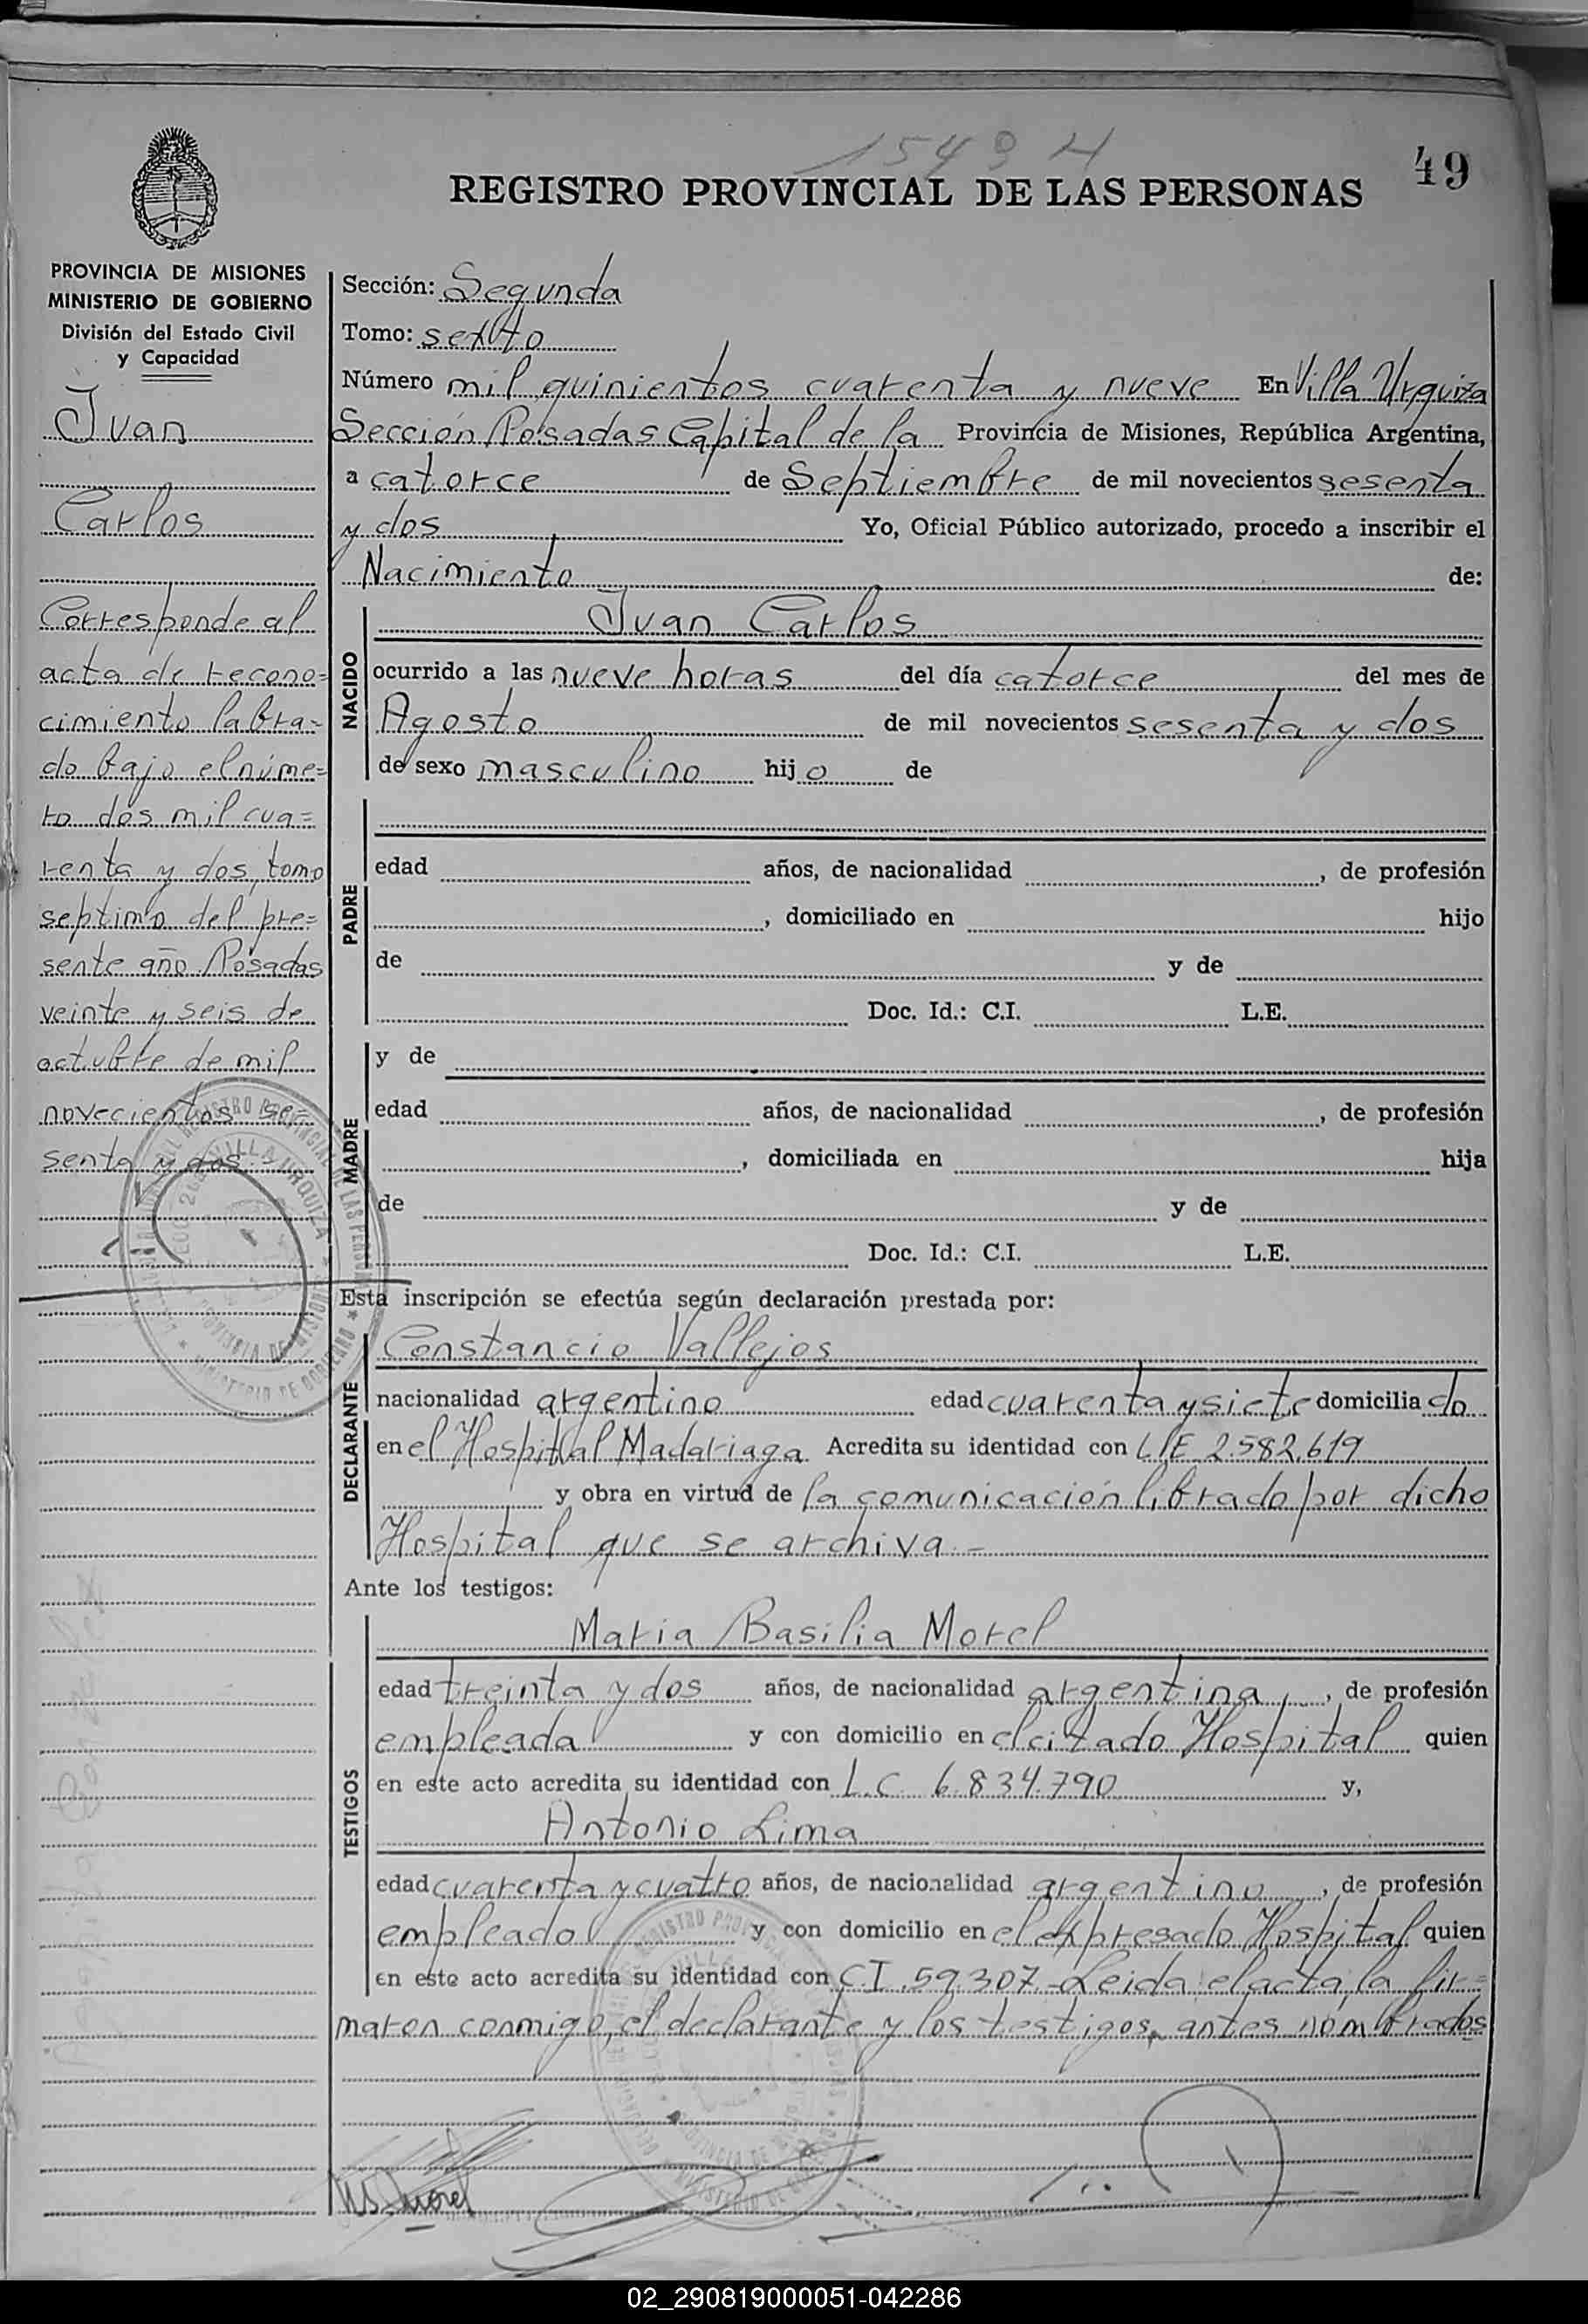 1549 H
49
REGISTRO PROVINCIAL DE LAS PERSONAS
PROVINCIA DE MISIONES
MINISTERIO DE GOBIERNO
División del Estado Civil
y Capacidad
Juan
Carlos
Corresponde al
acta de recono=
cimiento labra=
do bajo el núme=
ro dos mil cua=
renta y dos, tomo
septimo del pre=
sente año. Posadas
veinte y seis de
octubre de mil
novecientos se=
senta y dos -
Sección: Segunda
Tomo: sexto
Número mil quinientos cuarenta y nueve En Villa Urquiza
Sección Posadas Capital de la Provincia de Misiones, República Argentina,
a catorce de Septiembre de mil novecientos sesenta
y dos Yo, Oficial Público autorizado, procedo a inscribir el
Nacimiento de:
NACIDO
Juan Carlos
ocurrido a las nueve horas del día catorce del mes de
Agosto de mil novecientos sesenta y dos
de sexo masculino hijo de
PADRE
edad años, de nacionalidad , de profesión
, domiciliado en hijo
de y de
Doc. Id.: C.I. L.E.
MADRE
y de
edad años, de nacionalidad , de profesión
, domiciliada en hija
de y de
Doc. Id.: C.I. L.E.
Esta inscripción se efectúa según declaración prestada por:
DECLARANTE
Constancio Vallejos
nacionalidad argentino edad cuarenta y siete domiciliado
en el Hospital Madariaga Acredita su identidad con L.E 2.582.619
y obra en virtud de la comunicación librado por dicho
Hospital que se archiva.-
Ante los testigos:
TESTIGOS
Maria Basilia Morel
edad treinta y dos años, de nacionalidad argentina, de profesión
empleada y con domicilio en el citado Hospital quien
en este acto acredita su identidad con L.C. 6.834.790 y,
Antonio Lima
edad cuarenta y cuatro años, de nacionalidad argentino, de profesión
empleado y con domicilio en el expresado Hospital quien
en este acto acredita su identidad con C.I. 59.307 - Leida el acta, la fir=
maron conmigo, el declarante y los testigos, antes nombrados
Morel
02_290819000051-042286